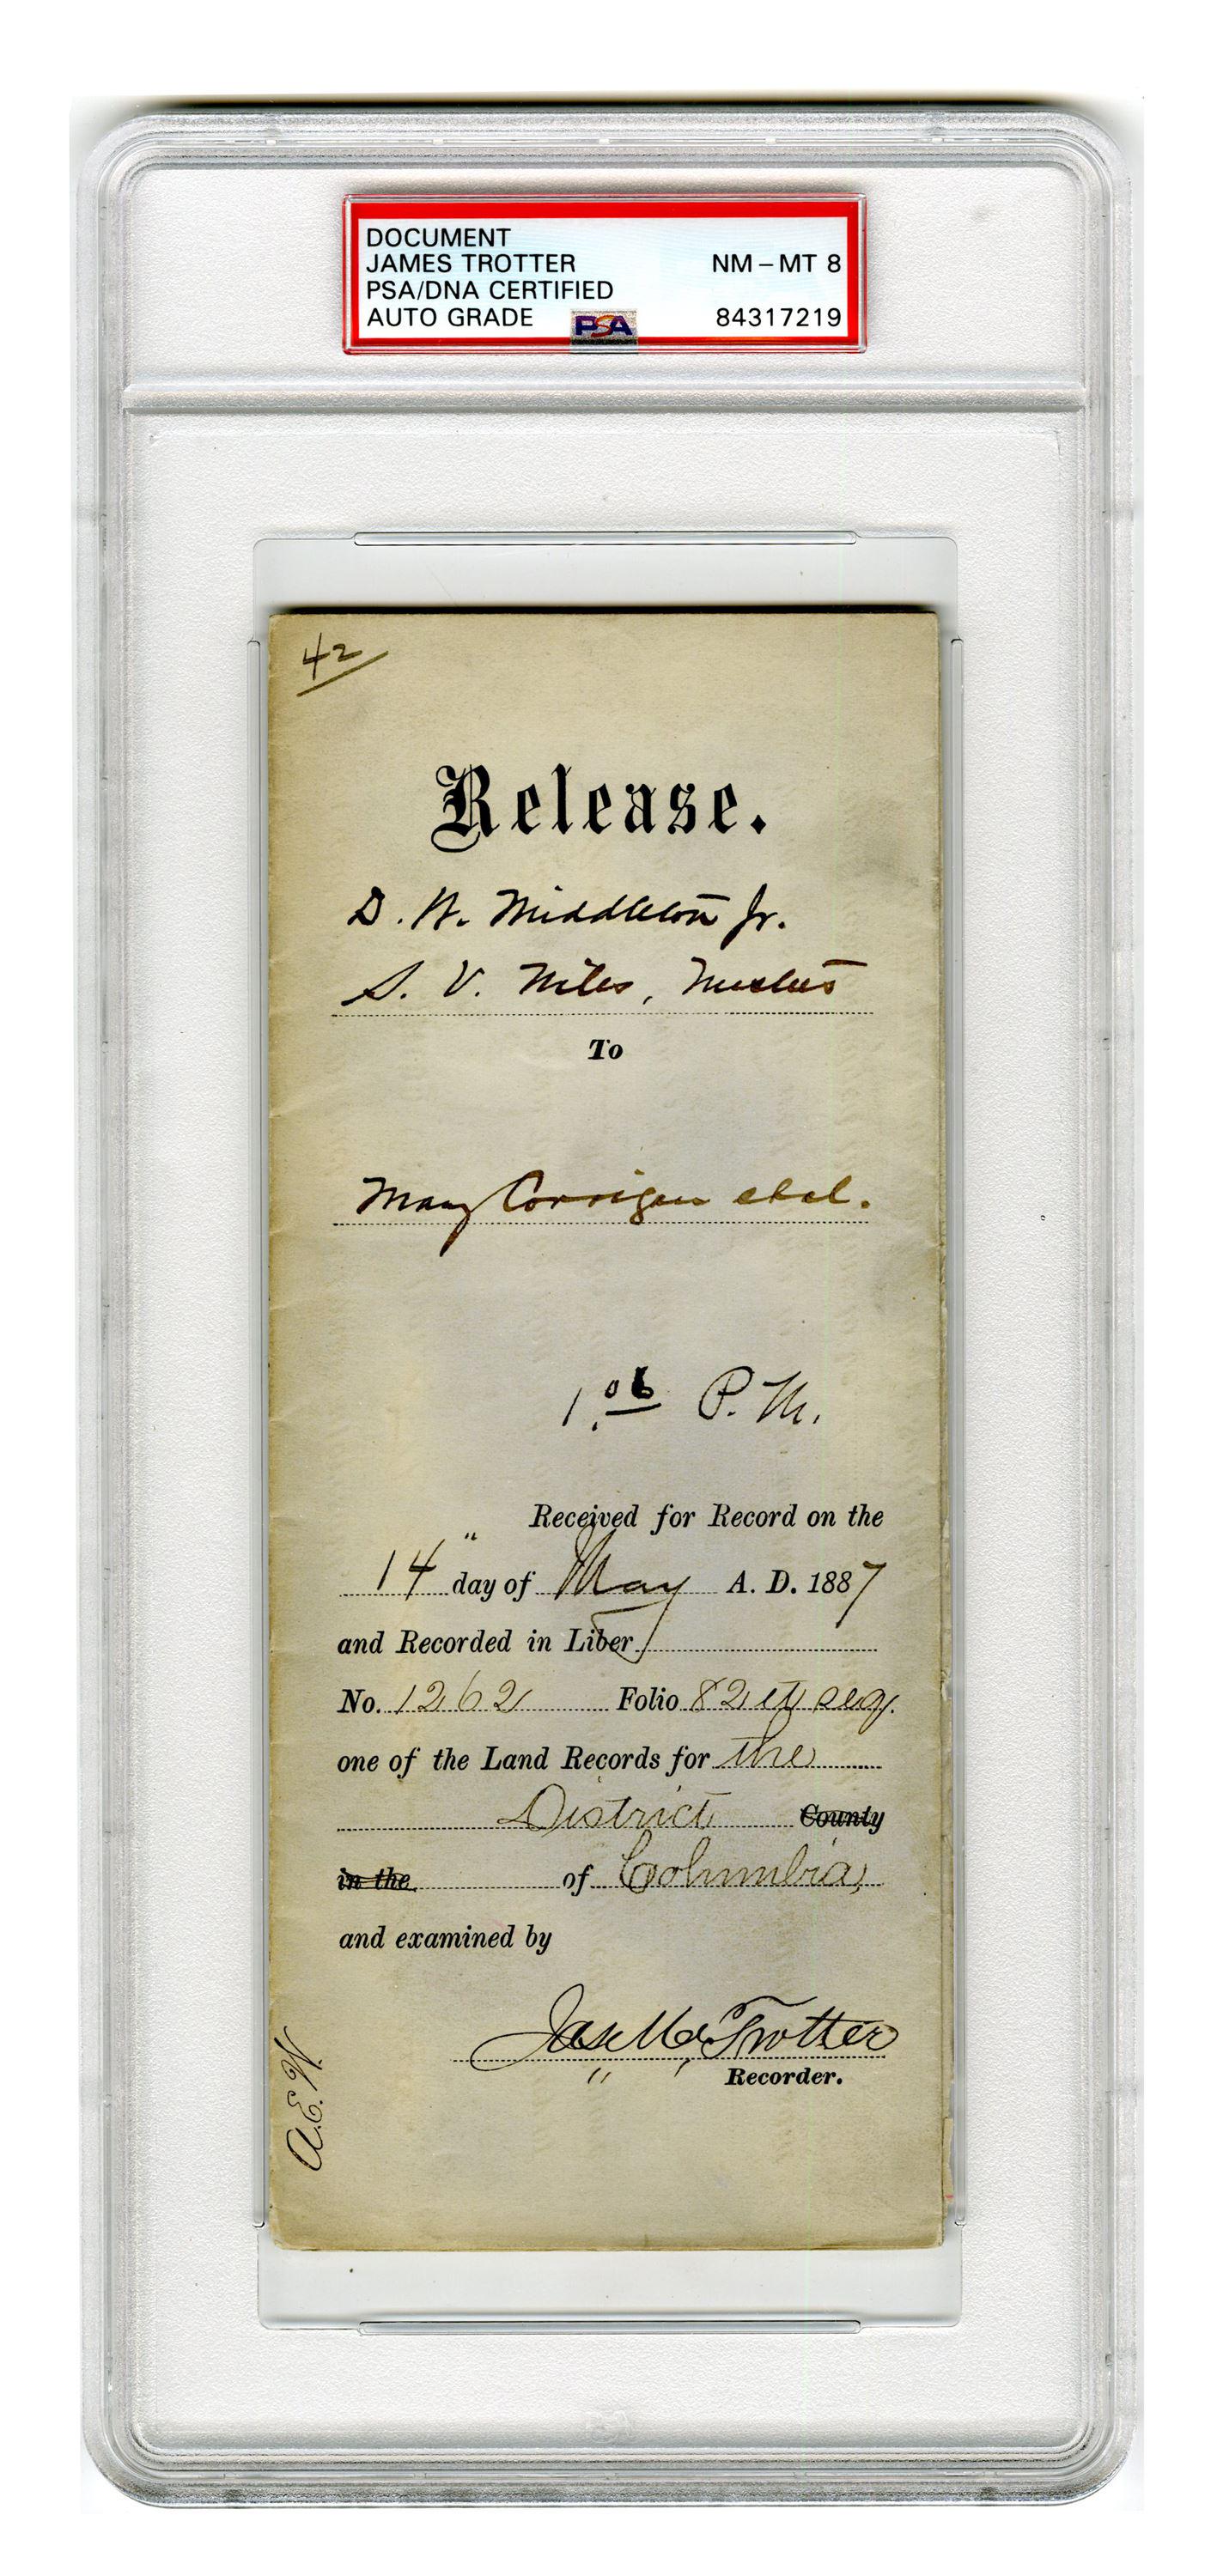 DOCUMENT
JAMES TROTTER NM-MT 8
PSA/DNA CERTIFIED
AUTO GRADE PSA 84317219
42
Release.
D. W. Middleton Jr.
S. V. Niles, Trustees
To
Mary Corrigan et al.
1.06 P.M.
Received for Record on the
14" day of May A. D. 1887
and Recorded in Liber
No. 1262 Folio 82 et seq.
one of the Land Records for the
District County
in the of Columbia,
and examined by
Jas. M. Trotter
Recorder.
A.E.W.